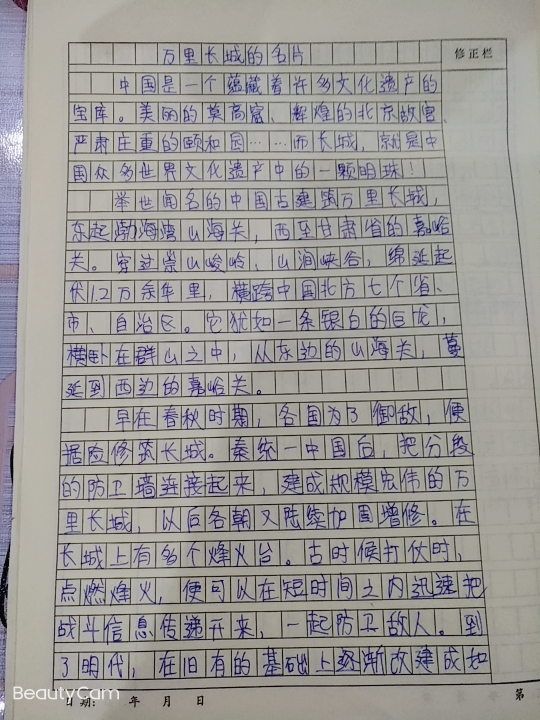 万里长城的名片
修正栏
中国是一个蕴藏着许多文化遗产的
宝库。美丽的莫高窟、辉煌的北京故宫、
严肃庄重的颐和园……而长城,就是中
国众多世界文化遗产中的一颗明珠!
举世闻名的中国古建筑万里长城,
东起渤海湾山海关,西至甘肃省的嘉峪
关。穿过崇山峻岭、山涧峡谷,绵延起
伏1.2万余年里,横跨中国北方七个省、
市、自治区。它犹如一条银白的巨龙,
横卧在群山之中,从东边的山海关,蔓
延到西边的嘉峪关。
早在春秋时期,各国为了御敌,便
据险修筑长城。秦统一中国后,把分段
的防卫墙连接起来,建成规模宏伟的万
里长城,以后各朝又陆续加固增修。在
长城上有多个烽火台。古时候打仗时,
点燃烽火,便可以在短时间之内迅速把
战斗信息传递开来,一起防卫敌人。到
了明代,在旧有的基础上逐渐改建成如
日期: 年 月 日
第
BeautyCam